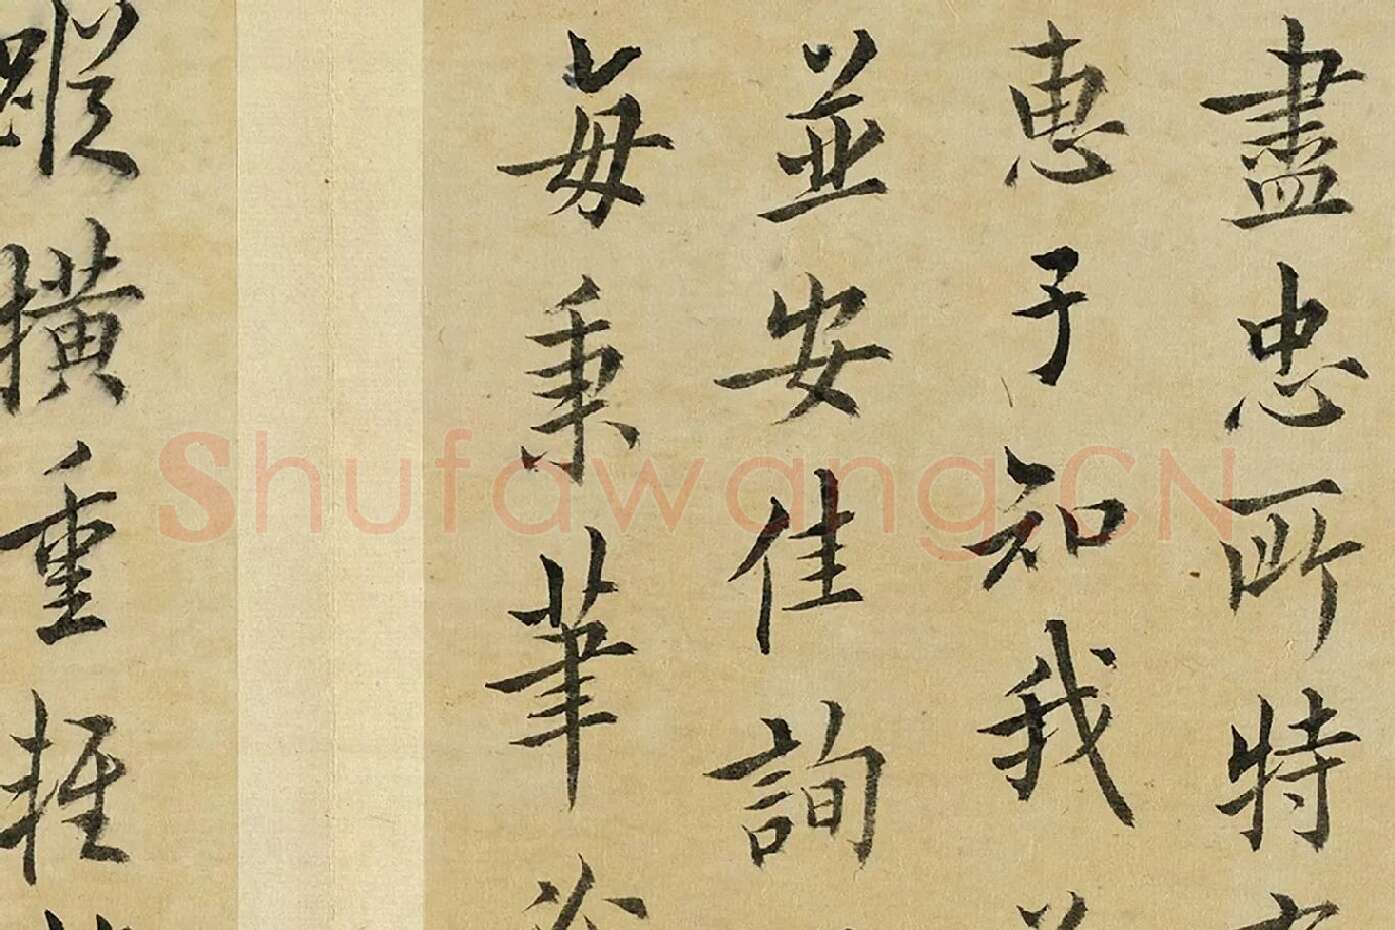 盡忠所特
惠子知我
並安佳詢
每秉筆
蹤橫重
Shufawang.CN